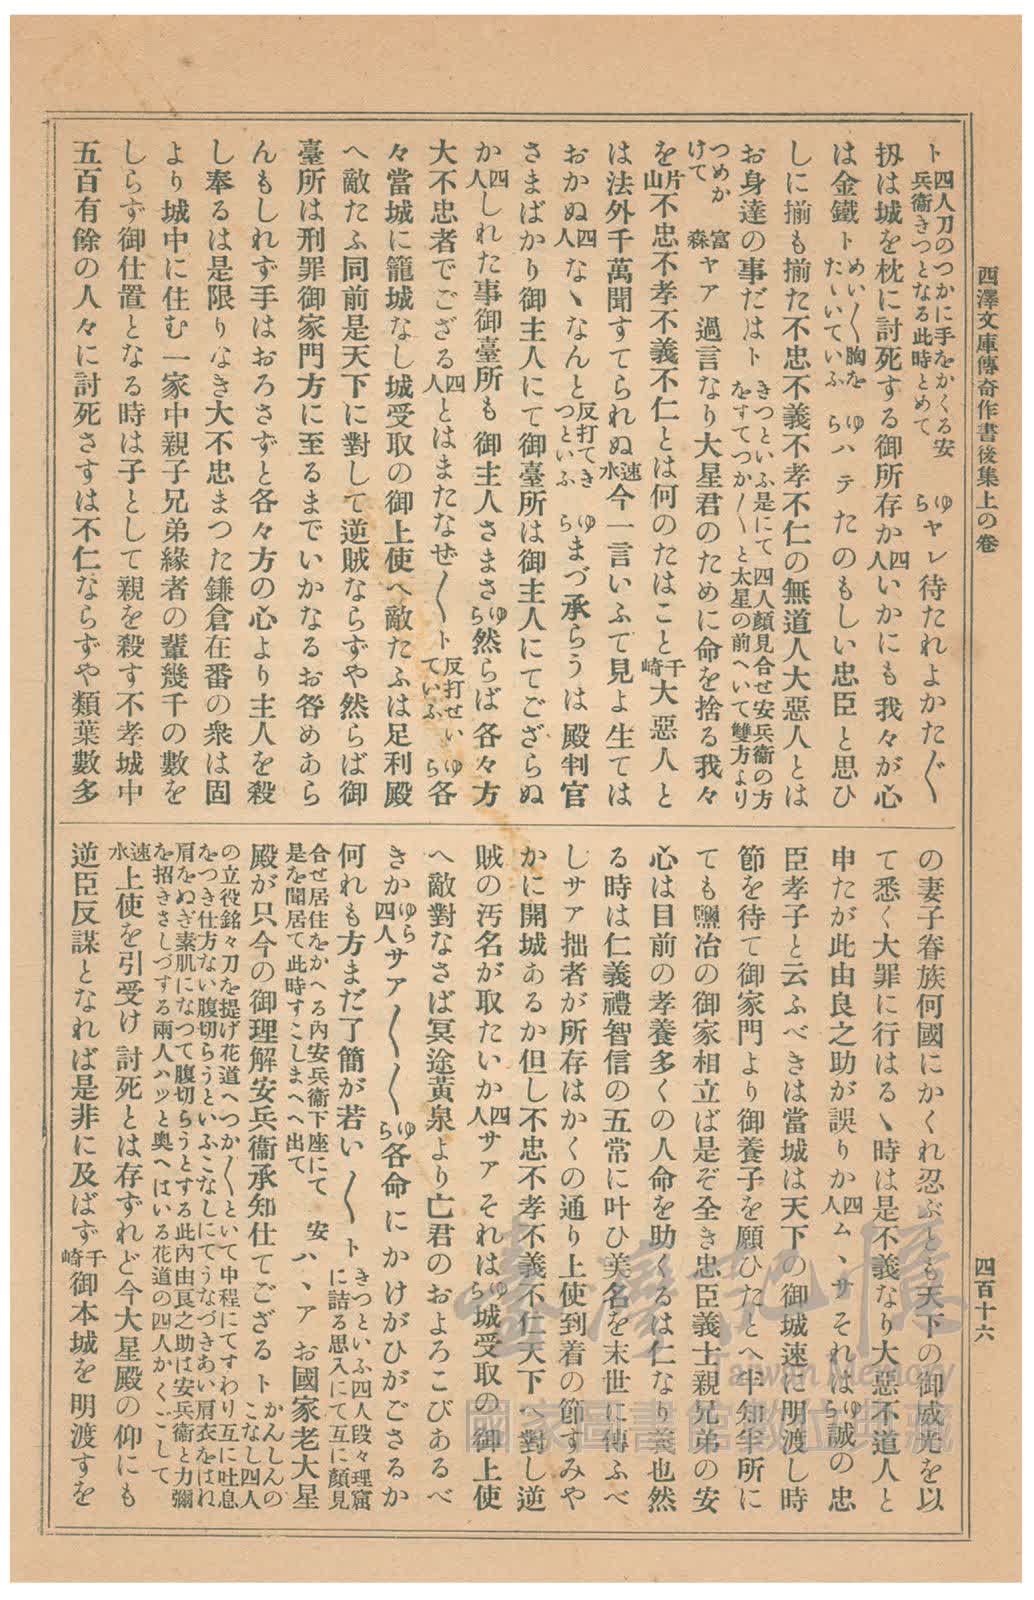 西澤文庫傳奇作書後集上の卷
四百十六
ト 四人刀のつかに手をかくる安兵衞きつとなる此時とめて ゆら ヤレ待たれよかた〲
扨は城を枕に討死する御所存か 四人 いかにも我々が心
は金鐵 ト めい〳〵胸をたゝいていふ ゆら ハテたのもしい忠臣と思ひ
しに揃も揃た不忠不義不孝不仁の無道人大惡人とは
お身達の事だはト きつといふ是にて四人顔見合せ安兵衞の方をすてつか〳〵と太星の前へいて雙方より
つめかけて 富森 ヤア過言なり大星君のために命を捨る我々
を 片山 不忠不孝不義不仁とは何のたはこと 千崎 大惡人と
は法外千萬聞すてられぬ 速水 今一言いふて見よ生ては
おかぬ 四人 なゝなんと 反打てきつといふ ゆら まづ承らうは殿判官
さまばかり御主人にて御臺所は御主人にてござらぬ
か 四人 しれた事御臺所も御主人さまさ ゆら 然らば各々方
大不忠者でござる 四人 とはまたなぜ〳〵ト 反打せいていふ ゆら 各
々當城に籠城なし城受取の御上使へ敵たふは足利殿
へ敵たふ同前是天下に對して逆賊ならずや然らば御
臺所は刑罪御家門方に至るまでいかなるお咎めあら
んもしれず手はおろさずと各々方の心より主人を殺
し奉るは是限りなき大不忠まつた鎌倉在番の衆は固
より城中に住む一家中親子兄弟緣者の輩幾千の數を
しらず御仕置となる時は子として親を殺す不孝城中
五百有餘の人々に討死さすは不仁ならずや類葉數多
の妻子眷族何國にかくれ忍ぶとも天下の御威光を以
て悉く大罪に行はるゝ時は是不義なり大惡不道人と
申たが此由良之助が誤りか 四人 ムヽサそれは ゆら 誠の忠
臣孝子と云ふべきは當城は天下の御城速に明渡し時
節を待て御家門より御養子を願ひたとへ半知半所に
ても鹽冶の御家相立ば是ぞ全き忠臣義士親兄弟の安
心は目前の孝養多くの人命を助くるは仁なり義也然
る時は仁義禮智信の五常に叶ひ美名を末世に傳ふべ
しサア拙者が所存はかくの通り上使到着の節すみや
かに開城あるか但し不忠不孝不義不仁天下へ對し逆
賊の汚名が取たいか 四人 サアそれは ゆら 城受取の御上使
へ敵對なさば冥途黄泉より亡君のおよろこびあるべ
きか ゆら四人 サア〳〵〳〵 ゆら 各命にかけがひがごさるか
何れも方まだ了簡が若い〳〵ト きつといふ四人段々理窟に詰る思入にて互に顔見
合せ居住をかへる內安兵衞下座にて是を聞居て此時すこしまへへ出て 安 ハヽアお國家老大星
殿が只今の御理解安兵衞承知仕てござるト かんしんのこなし四人
の立役銘々刀を提げ花道へつか〳〵といて中程にてすわり互に吐息をつき仕方ない腹切らうといふこなしにてうなづきあい肩衣をはれ
肩をぬぎ素肌になつて腹切らうとする此內由良之助は安兵衞と力彌を招きさしづする兩人ハッと奧へはいる花道の四人かくごして
速水 上使を引受け討死とは存ずれど今大星殿の仰にも
逆臣反謀となれば是非に及ばず 千崎 御本城を明渡すを
臺灣記憶
Taiwan Memory
國家圖書館數位典藏